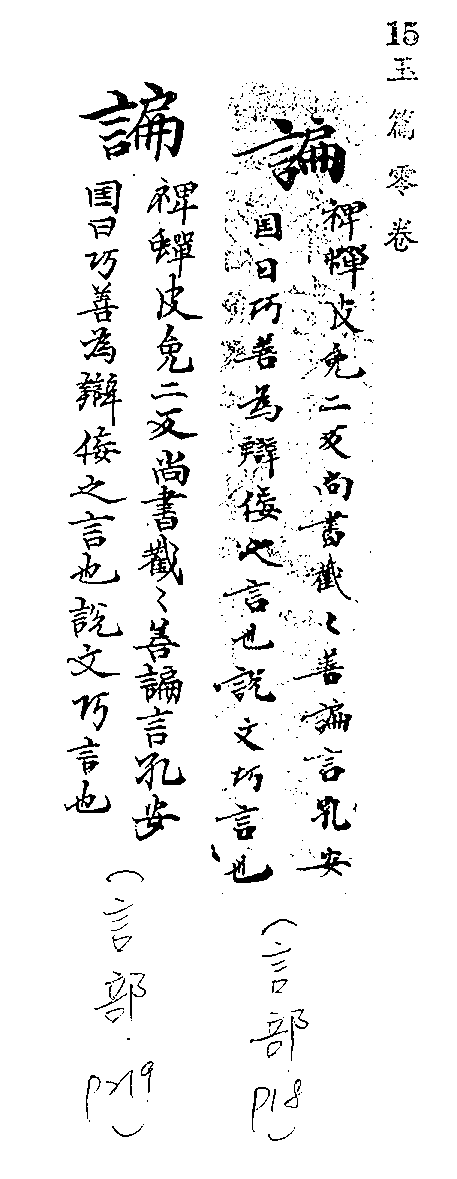 15
玉篇零卷
諞
裨蟬皮免二反尚書截〻善諞言孔安
国曰巧善為辯佞之言也說文巧言也
(言部.P18)
諞
裨蟬皮免二反尚書截〻善諞言孔安
国曰巧善為辯佞之言也說文巧言也
(言部.P219)